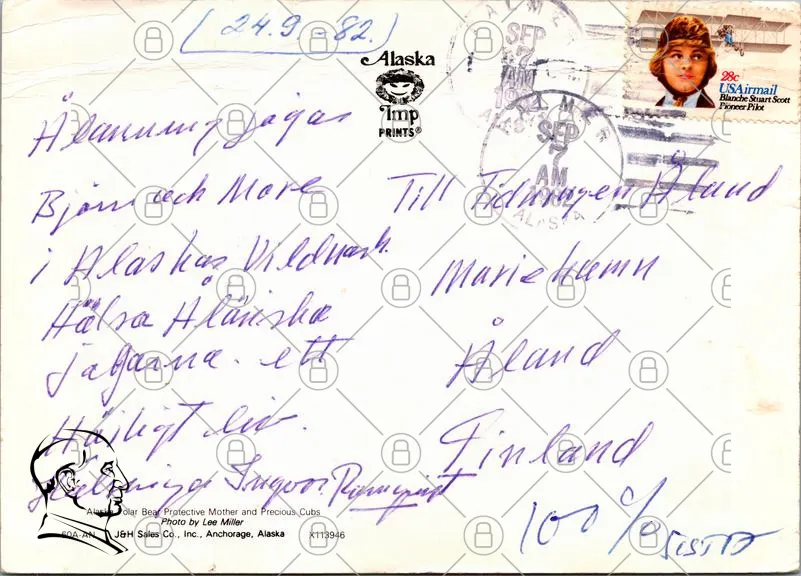 (24.9.-82.)
Alaska
Imp
PRINTS®
PALMER
SEP
7
AM
ALASKA
PALMER
SEP
7
AM
1982
ALASKA
28c
USAirmail
Blanche Stuart Scott
Pioneer Pilot
Ålänning jagar
Björn och More
i Alaskas Vildmark.
Hälsa Åländska
jägarna. ett
Häjligt liv.
Hälsningar Ingvor
Till Tidningen Åland
Mariehamn
Åland
Finland
100%
Alaska Polar Bear Protective Mother and Precious Cubs
Photo by Lee Miller
60A-AN J&H Sales Co., Inc., Anchorage, Alaska X113946